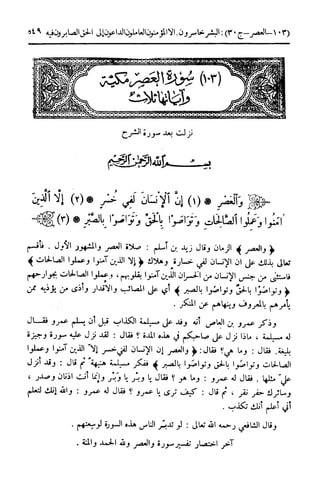 (١٠٣-العصر-ج ٣٠): البشر خاسرون. الا المؤمنون العاملون الداعون إلى الحق الصابرون فيه ٥٤٩
(١٠٣) سُورَةُ العَصْرِ مَكِيَّة
وَآيَانُهَا ثَلَاثٌ
نزلت بعد سورة الشرح
بِسْمِ اللهِ الرَّحْمٰنِ الرَّحِيمِ
وَالْعَصْرِ * (١) إِنَّ الْإِنْسَانَ لَفِي خُسْرٍ * (٢) إِلَّا الَّذِينَ
آمَنُوا وَعَمِلُوا الصَّالِحَاتِ وَتَوَاصَوْا بِالْحَقِّ وَتَوَاصَوْا بِالصَّبْرِ * (٣)
﴿ والعصر ﴾ الزمان وقال زيد بن أسلم : صلاة العصر والمشهور الأول . فأقسم
تعالى بذلك على ان الإنسان لفي خسارة وهلاك ﴿ إلا الذين آمنوا وعملوا الصالحات ﴾
فاستثنى من جنس الإنسان من الخسران الذين آمنوا بقلوبهم ، وعملوا الصالحات بجوارحهم
﴿ وتواصوا بالحق وتواصوا بالصبر ﴾ أي على المصائب والأقدار وأذى من يؤذيه ممن
يأمرهم بالمعروف وينهاهم عن المنكر .
وذكر عمرو بن العاص أنه وفد على مسيلمة الكذاب قبل أن يسلم عمرو فقال
له مسيلمة ، ماذا نزل على صاحبكم في هذه المدة ؟ فقال : لقد نزل عليه سورة وجيزة
بليغة. فقال : وما هي؟ فقال: ﴿ والعصر إن الإنسان لفي خسر إلا الذين آمنوا وعملوا
الصالحات وتواصوا بالحق وتواصوا بالصبر ﴾ ففكر مسيلمة هنيهة ثم قال : وقد أنزل
علي مثلها . فقال له عمرو : وما هو ؟ فقال يا وبر يا وبر وإنما أنت اذنان وصدر ،
وسائرك حفر نقر ، ثم قال : كيف ترى يا عمرو ؟ فقال له عمرو : والله إنك لتعلم
أني أعلم أنك تكذب .
وقال الشافعي رحمه الله تعالى : لو تدبر الناس هذه السورة لوسعتهم .
آخر اختصار تفسير سورة والعصر ولله الحمد والمنة .